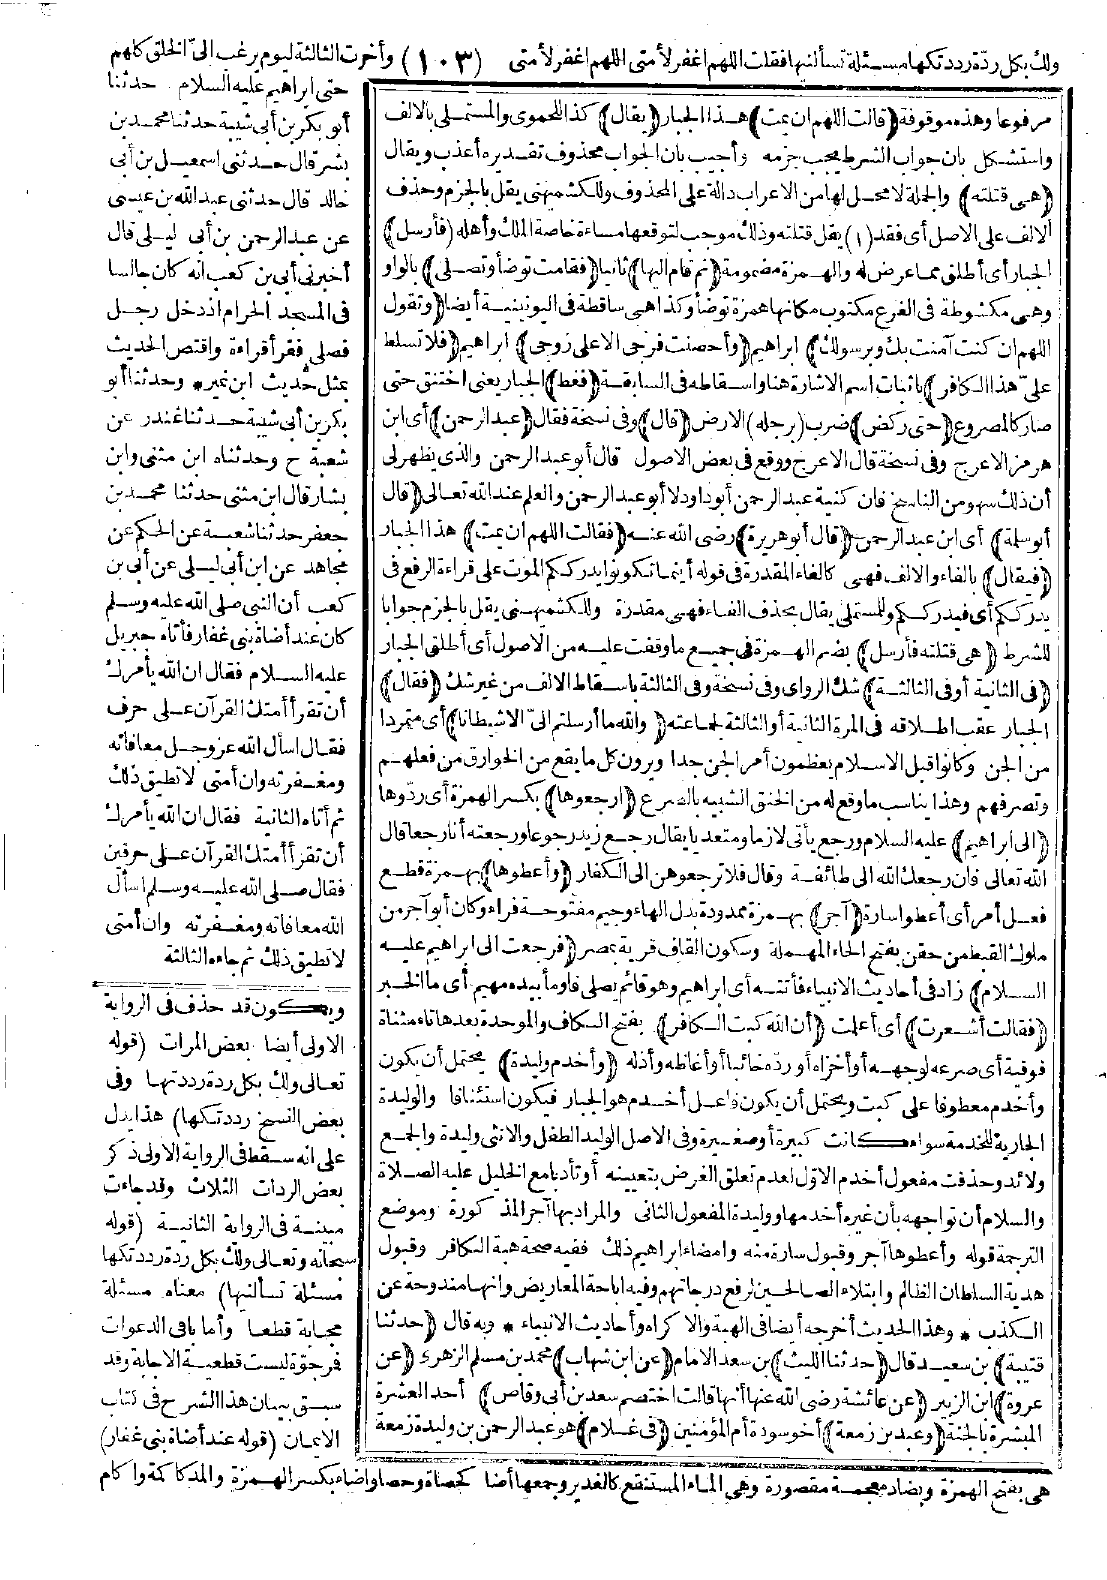 ولك بكل ردّة رددتكها مسئلة تسألنيها فقلت اللهم اغفر لأمتى اللهم اغفر لأمتى (١٠٣) وأخرت الثالثة ليوم يرغب الىّ الخلق كلهم
حتى ابراهيم عليه السلام حدثنا
أبو بكر بن أبى شيبة حدثنا محمد بن
بشر قال حدثنى اسمعيل بن أبى
خالد قال حدثنى عبد الله بن عيسى
عن عبد الرحمن بن أبى ليلى قال
أخبرنى أبى بن كعب انه كان جالسا
فى المسجد الحرام اذ دخل رجل
فصلى فقرأ قراءة واقتص الحديث
بمثل حديث ابن نمير * وحدثنا أبو
بكر بن أبى شيبة حدثنا غندر عن
شعبة ح وحدثناه ابن مثنى وابن
بشار قال ابن مثنى حدثنا محمد بن
جعفر حدثنا شعبة عن الحكم عن
مجاهد عن ابن أبى ليلى عن أبى بن
كعب أن النبى صلى الله عليه وسلم
كان عند أضاة بنى غفار فأتاه جبريل
عليه السلام فقال ان الله يأمرك
أن تقرأ أمتك القرآن على حرف
فقال اسأل الله عز وجل معافاته
ومغفرته وان أمتى لا تطيق ذلك
ثم أتاه الثانية فقال ان الله يأمرك
أن تقرأ أمتك القرآن على حرفين
فقال صلى الله عليه وسلم اسأل
الله معافاته ومغفرته وان أمتى
لا تطيق ذلك ثم جاءه الثالثة
ويكون قد حذف فى الرواية
الاولى أيضا بعض المرات (قوله
تعالى ولك بكل ردة رددتها وفى
بعض النسخ رددتكها) هذا يدل
على انه سقط فى الرواية الاولى ذكر
بعض الردات الثلاث وقد جاءت
مبينة فى الرواية الثانية (قوله
سبحانه وتعالى ولك بكل ردة رددتكها
مسئلة تسألنيها) معناه مسئلة
مجابة قطعا وأما باقى الدعوات
فرجوّة ليست قطعية الاجابة وقد
سبق بيان هذا الشرح فى كتاب
الايمان (قوله عند أضاة بنى غفار)
مرفوعا وهذه موقوفة (قالت اللهم ان يمت) هذا الجبار (يقال) كذا للحموى والمستملى بالالف
واستشكل بان جواب الشرط يجب جزمه وأجيب بان الجواب محذوف تقديره أعذب ويقال
(هى قتلته) والجملة لا محل لها من الاعراب دالة على المحذوف وللكشميهنى يقل بالجزم وحذف
الالف على الاصل أى فقد (١) يقل قتلته وذلك موجب لتوقعها مساءة خاصة الملك وأهله (فأرسل)
الجبار أى أطلق مما عرض له والهمزة مضمومة (ثم قام اليها) ثانيا (فقامت توضأ وتصلى) بالواو
وهى مكشوطة فى الفرع مكتوب مكانها همزة توضأ وكذا هى ساقطة فى اليونينية أيضا (وتقول
اللهم ان كنت آمنت بك وبرسولك) ابراهيم (وأحصنت فرجى الا على زوجى) ابراهيم (فلا تسلط
علىّ هذا الكافر) باثبات اسم الاشارة هنا واسقاطه فى السابقة (فغط) الجبار يعنى اختنق حتى
صار كالمصروع (حتى ركض) ضرب (برجله) الارض (قال) وفى نسخة فقال (عبد الرحمن) أى ابن
هرمز الاعرج وفى نسخة قال الاعرج ووقع فى بعض الاصول قال أبو عبد الرحمن والذى يظهر لى
أن ذلك سهو من الناسخ فان كنية عبد الرحمن أبو داود لا أبو عبد الرحمن والعلم عند الله تعالى (قال
أبو سلمة) أى ابن عبد الرحمن (قال أبو هريرة) رضى الله عنه (فقالت اللهم ان يمت) هذا الجبار
(فيقال) بالفاء والالف فهى كالفاء المقدرة فى قوله أينما تكونوا يدرككم الموت على قراءة الرفع فى
يدرككم أى فيدرككم وللمستملى يقال بحذف الفاء فهى مقدرة وللكشميهنى يقل بالجزم جوابا
للشرط (هى قتلته فأرسل) بضم الهمزة فى جميع ما وقفت عليه من الاصول أى أطلق الجبار
(فى الثانية أو فى الثالثة) شك الراوى وفى نسخة وفى الثالثة باسقاط الالف من غير شك (فقال)
الجبار عقب اطلاقه فى المرة الثانية أو الثالثة لجماعته (والله ما أرسلتم الىّ الا شيطانا) أى متمردا
من الجن وكانوا قبل الاسلام يعظمون أمر الجن جدا ويرون كل ما يقع من الخوارق من فعلهم
وتصرفهم وهذا يناسب ما وقع له من الخنق الشبيه بالصرع (ارجعوها) بكسر الهمزة أى ردّوها
(الى ابراهيم) عليه السلام ورجع يأتى لازما ومتعديا يقال رجع زيد رجوعا ورجعته أنا رجعا قال
الله تعالى فان رجعك الله الى طائفة وقال فلا ترجعوهن الى الكفار (وأعطوها) بهمزة قطع
فعل أمر أى أعطوا سارة (آجر) بهمزة ممدودة بدل الهاء وجيم مفتوحة فراء وكان أبو آجر من
ملوك القبط من حفن بفتح الحاء المهملة وسكون القاف قرية بمصر (فرجعت الى ابراهيم عليه
السلام) زاد فى أحاديث الانبياء فأتته أى ابراهيم وهو قائم يصلى فاومأ بيده مهيم أى ما الخبر
(فقالت أشعرت) أى أعلمت (أن الله كبت الكافر) بفتح الكاف والموحدة بعدها تاء مثناة
فوقية أى صرعه لوجهه أو أخزاه أو ردّه خائبا أو أغاظه وأذله (وأخدم وليدة) يحتمل أن يكون
وأخدم معطوفا على كبت ويحتمل أن يكون فاعل أخدم هو الجبار فيكون استئنافا والوليدة
الجارية للخدمة سواء كانت كبيرة أو صغيرة وفى الاصل الوليد الطفل والانثى وليدة والجمع
ولائد وحذفت مفعول أخدم الاوّل لعدم تعلق الغرض بتعيينه أو تأدبا مع الخليل عليه الصلاة
والسلام أن تواجهه بأن غيره أخدمها ووليدة المفعول الثانى والمراد بها آجر المذكورة وموضع
الترجمة قوله وأعطوها آجر وقبول سارة منه وامضاء ابراهيم ذلك ففيه صحة هبة الكافر وقبول
هدية السلطان الظالم وابتلاء الصالحين لرفع درجاتهم وفيه اباحة المعاريض وانها مندوحة عن
الكذب * وهذا الحديث أخرجه أيضا فى الهبة والاكراه وأحاديث الانبياء * وبه قال (حدثنا
قتيبة) بن سعيد قال (حدثنا الليث) بن سعد الامام (عن ابن شهاب) محمد بن مسلم الزهرى (عن
عروة) ابن الزبير (عن عائشة رضى الله عنها أنها قالت اختصم سعد بن أبى وقاص) أحد العشرة
المبشرة بالجنة (وعبد بن زمعة) أخو سودة أم المؤمنين (فى غلام) هو عبد الرحمن بن وليدة زمعة
هى بفتح الهمزة وبضاد معجمة مقصورة وهى الماء المستنقع كالغدير وجمعها أضا كحصاة وحصا واضاء بكسر الهمزة والمد كاكمة واكام